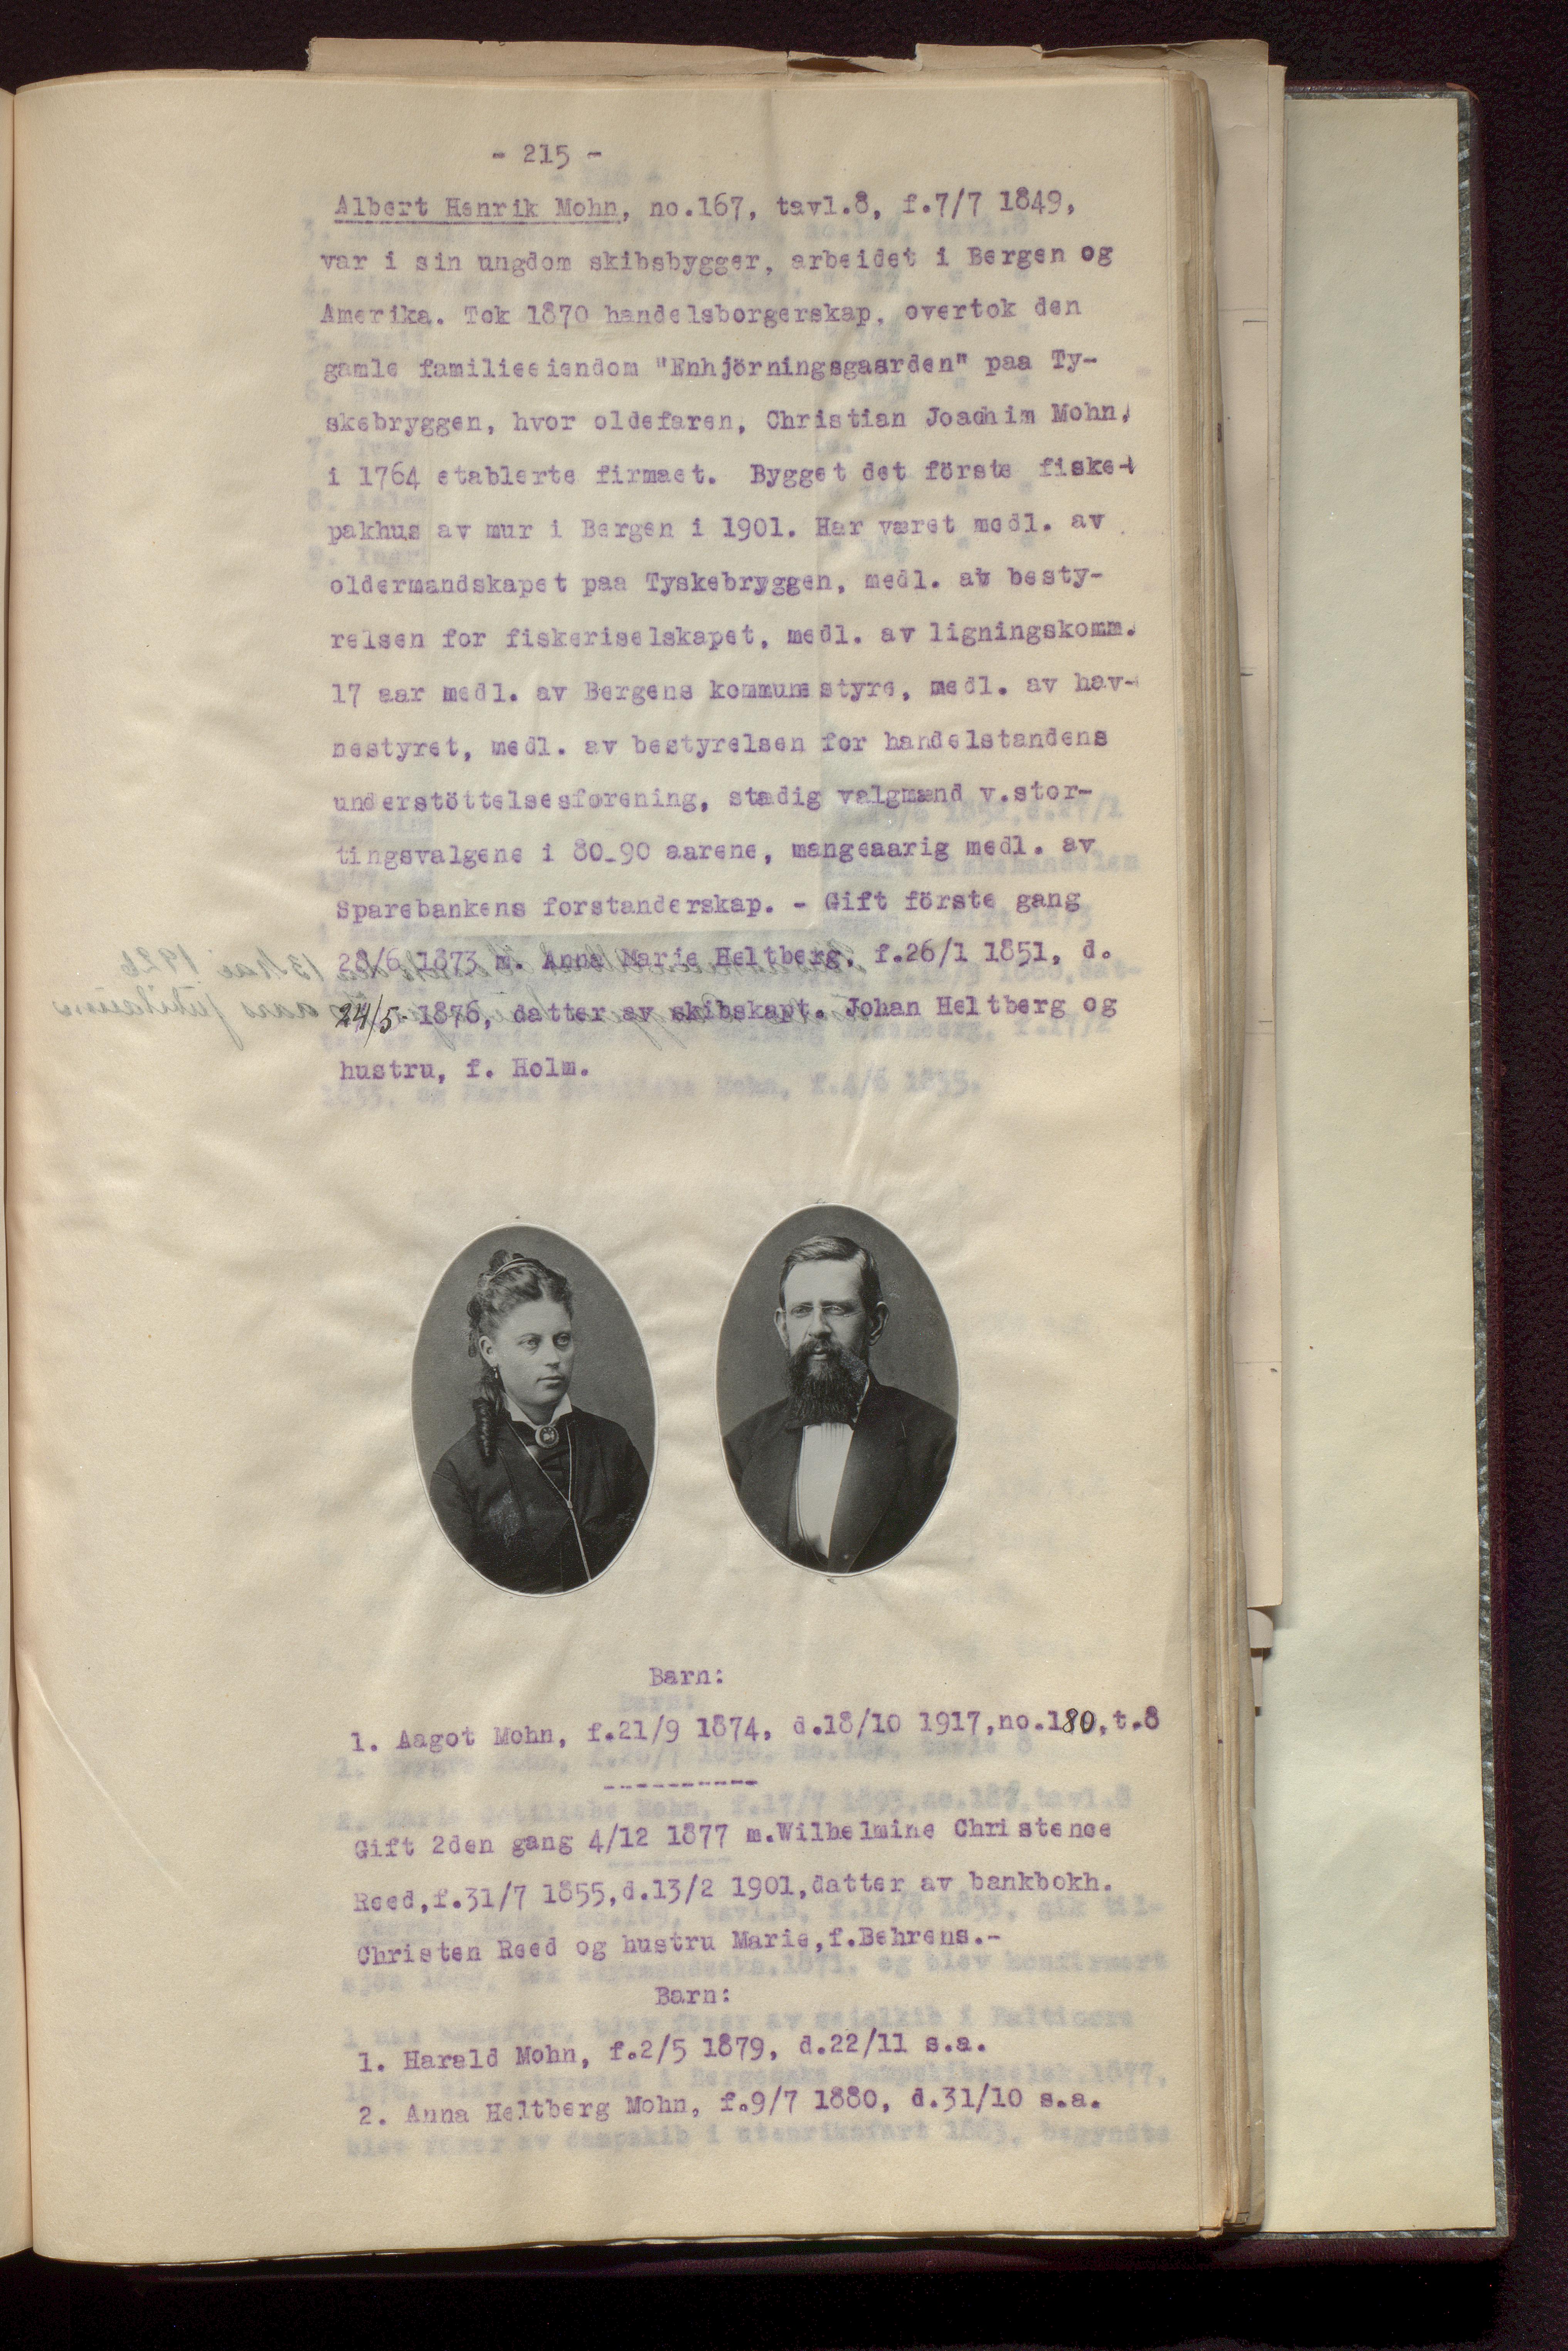 - 215 -
Albert Henrik Mohn, no.167, tavl.8, f.7/7 1849,
var i sin ungdom skibsbygger, arbeidet i Bergen og
Amerika. Tok 1870 handelsborgerskap, overtok den
gamle familieeiendom "Enhjörningsgaarden" paa Ty-
skebryggen, hvor oldefaren, Christian Joachim Mohn,
i 1764 etablerte firmaet. Bygget det förste fiske-
pakhus av mur i Bergen i 1901. Har været medl. av
oldermandskapet paa Tyskebryggen, medl. av besty-
relsen for fiskeriselskapet, medl. av ligningskomm.
17 aar medl. av Bergens kommunestyre, medl. av hav-
nestyret, medl. av bestyrelsen for handelstandens
understöttelsesforening, stadig valgmænd v.stor-
tingsvalgene i 80-90 aarene, mangeaarig medl. av
Sparebankens forstanderskap. - Gift förste gang
28/6 1873 m. Anna Marie Heltberg, f.26/1 1851, d.
24/5- 1876, datter av skibskapt. Johan Heltberg og
hustru, f. Holm.
Barn:
1. Aagot Mohn, f.21/9 1874, d.18/10 1917,no.180,t.8
-----------
Gift 2den gang 4/12 1877 m.Wilhelmine Christence
Reed,f.31/7 1855,d.13/2 1901,datter av bankbokh.
Christen Reed og hustru Marie,f.Behrens.-
Barn:
1. Harald Mohn, f.2/5 1879, d.22/11 s.a.
2. Anna Heltberg Mohn, f.9/7 1880, d.31/10 s.a.